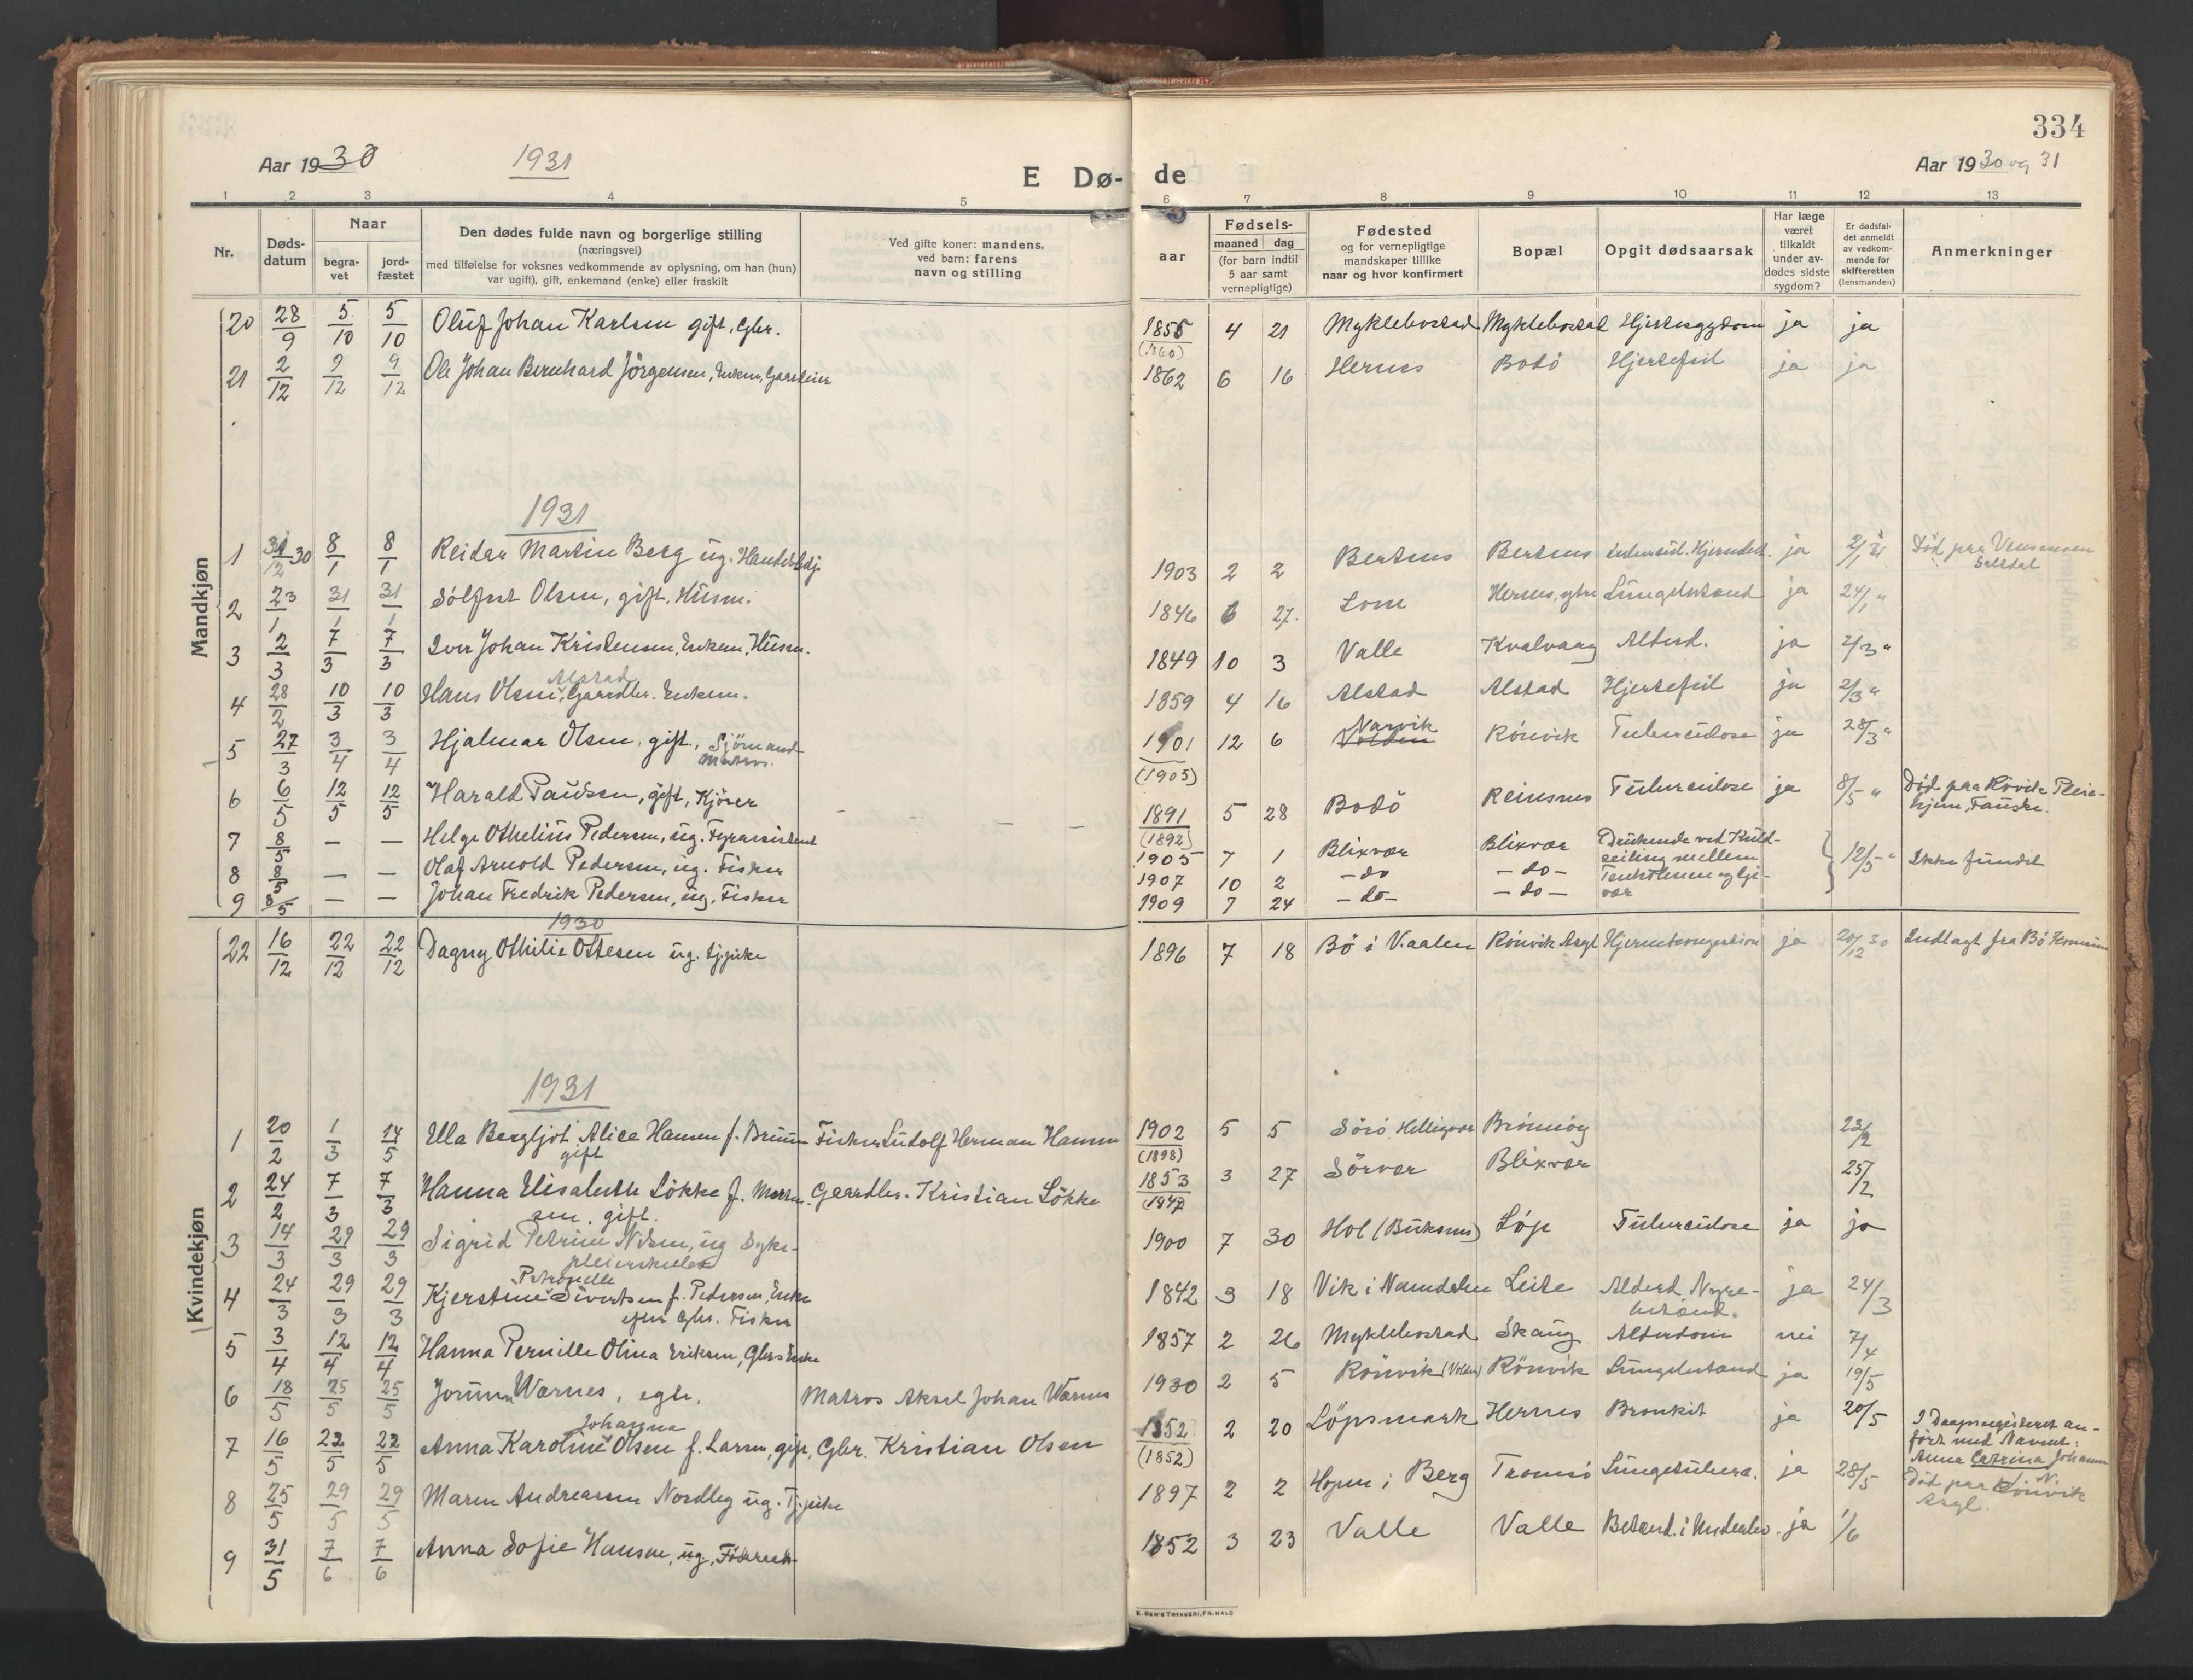 334
Aar 1930 1931 E Dø- de Aar 1930 og 31
1 2 3 4 5 6 7 8 9 10 11 12 13
Nr.
Døds-
datum
Naar
begra-
vet
jord-
fæstet
Den dødes fulde navn og borgerlige stilling
(næringsvei)
med tilføielse for voksnes vedkommende av oplysning, om han (hun)
var ugift), gift, enkemand (enke) eller fraskilt
Ved gifte koner: mandens,
ved barn: farens
navn og stilling
aar
Fødsels-
maaned dag
(for barn indtil
5 aar samt
vernepligtige)
Fødested
og for vernepligtige
mandskaper tillike
naar og hvor konfirmert
Bopæl
Opgit dødsaarsak
Har læge
været
tilkaldt
under av-
dødes sidste
sygdom?
Er dødsfal-
det anmeldt
av vedkom-
mende for
skifteretten
(lensmanden)
Anmerkninger
Mandkjøn
20 28/9 5/10 5/10 Oluf Johan Karlsen gift, Gbr. 1855 (1860) 4 21 Myklebostad Myklebostad Hjertesygdom ja ja
21 2/12 9/12 9/12 Ole Johan Bernhard Jörgensen, Enkem, 1862 6 16 Hernes Bodö Hjertefeil ja ja
1931
1 31/12 30 8/1 8/1 Reidar Martin Berg ug. Handelsbtj. 1903 2 2 Bertnes Bertnes ja 2/1 31 Död paa
Saltdal
2 23/1 31/1 31/1 Sölfest Olsen, gift. Husm. 1846 6 27. Lom Hernes, ytre Lungebetænd ja 24/1 "
3 2/3 7/3 7/3 Iver Johan Kristensen, Enkem, Husm. 1849 10 3 Valle Kvalvaag Alderd. ja 2/3 "
Alstad
4 28/2 10/3 10/3 Hans Olsen, Gaardbr. Enkem. 1859 4 16 Alstad Alstad Hjertefeil ja 2/3 "
5 27/3 3/4 3/4 Hjalmar Olsen, gift, Sjömand 1901 (1905) 12 6 Narvik Rönvik Tuberculose ja 28/3 "
Matros.
6 6/5 12/5 12/5 Harald Paulsen, gift, Kjörer 1891 (1892) 5 28 Bodö Reinsnes Tuberculose ja 8/5 " Död paa Rövik Pleie-
hjem, Fauske.
7 8/5 — — Helge Othelius Pedersen, ug. Fyrassistent 1905 7 1 Blixvær Blixvær Druknede ved Kuld-
seiling mellem
8 8/5 — — Olaf Arnold Pedersen, ug. Fisker 1907 10 2 — do — do — 12/5 " Ikke fundet
9 8/5 — — Johan Fredrik Pedersen, ug. Fisker 1909 7 24 — do — — do —
Kvindekjøn
1930
22 16/12 22/12 22/12 Dagny Othilie Ottesen ug. tj.pike 1896 7 18 Bö i V.aalen Rönvik Asyl Hjernekongestion ja 20/12 30 Indlagt fra Bö Komm
1931
1 20/2 1/3 14/5 Ella Bergljot Alice Hansen f. Bruun Fisker Ludolf Herman Hansen 1902 (1898) 5 5 Sörö, Helligvær Brönnöy 23/2
gift
2 24/2 7/3 7/3 Hanna Elisabeth Lökke f. Morten- Gaardbr. Kristian Lökke 1853 1847 3 27 Sörvær Blixvær 25/2
sen, gift.
3 14/3 29/3 29/3 Sigrid Petrine Nilsen, ug Syke- 1900 7 30 Hol (Buksnes) Löp Tuberculose ja ja
pleierskeelev
Petronelle
4 24/3 29/3 29/3 Kjerstine Sivertsen f. Pedersen, Enke 1842 3 18 Vik i Namdalen Leite Alderd. Nyre- ja 24/3
efter Gbr. Fisker betænd.
5 3/4 12/4 12/4 Hanna Pernille Olina Eriksen, Gbrs Enke 1857 2 26 Myklebostad Skaug Alderdom nei 7/4
6 18/5 25/5 25/5 Jorunn Warnes, egte. Matros Aksel Johan Warnes 1930 2 5 Rönvik (Volden) Rönvik Lungebetænd ja 19/5
Johanna
7 16/5 22/5 22/5 Anna Karoline Olsen f. Larsen, gift, Gbr. Kristian Olsen 1852 (1852) 2 20 Löpsmark Hernes Bronkit ja 20/5 I Daapsregisteret an-
fört med Navnet:
Anna Catrina Johanna
8 25/5 29/5 29/5 Maren Andreassen Nordby ug. Tj.pike 1897 2 2 Hopen i Berg Tromsö Lungetuberc. ja 28/5 Död paa Rönvik
Asyl.
9 31/5 7/6 7/6 Anna Sofie Hansen, ug, 1852 3 23 Valle Valle Betænd. i Underliv. ja 1/6
E. SEM'S TRYKKERI, FR.HALD